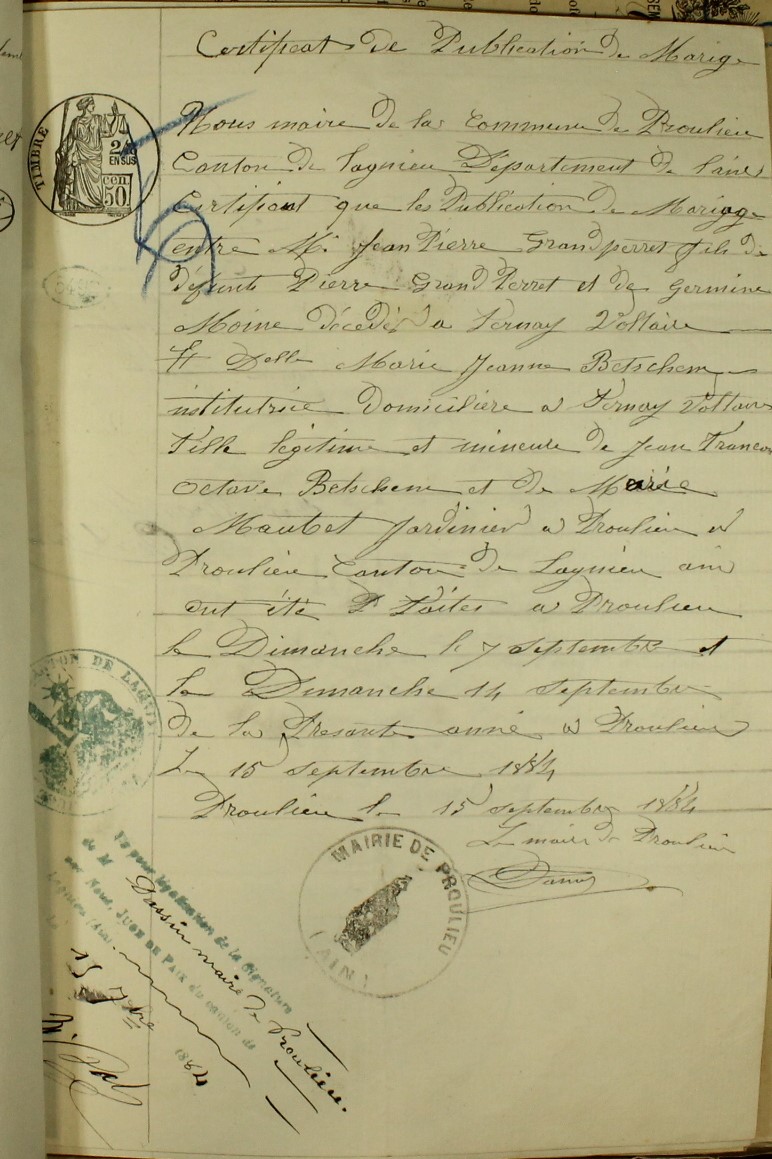 Certificat de Publication de Marige
TIMBRE
2/10
EN SUS
50 cen
Nous maire de la Commune de Proulieu
Canton de lagnieu Département de l'ain
Certifiont que les Publication de Mariage
entre M. Jean Pierre Grandperret fils de
défunts Pierre Grand Perret et de Germine
Moine décedés a Fernay Voltaire
Et Delle Marie Jeanne Betschem
institutrice Domicilière a Fernay Voltaire
Fille légitime et mineure de Jean Francois
Octave Betschem et de Marie
Maubet Jardinier a Proulieu a
Proulieu Canton de Lagnieu ain
ont été Faites a Proulieu
le Dimanche le 7 septembre et
le Dimanche 14 septembre
de la Presante anné a Proulieu
Le 15 septembre 1884
Proulieu le 15 septembre 1884
Le maire de Proulieu
MAIRIE DE PROULIEU
(AIN)
CANTON DE LAGNIEU
Vu pour légalisation de la signature
de M Dassin maire de Proulieu.
par Nous, JUGE DE PAIX du canton de
Lagnieu (Ain)
15 7bre 1884